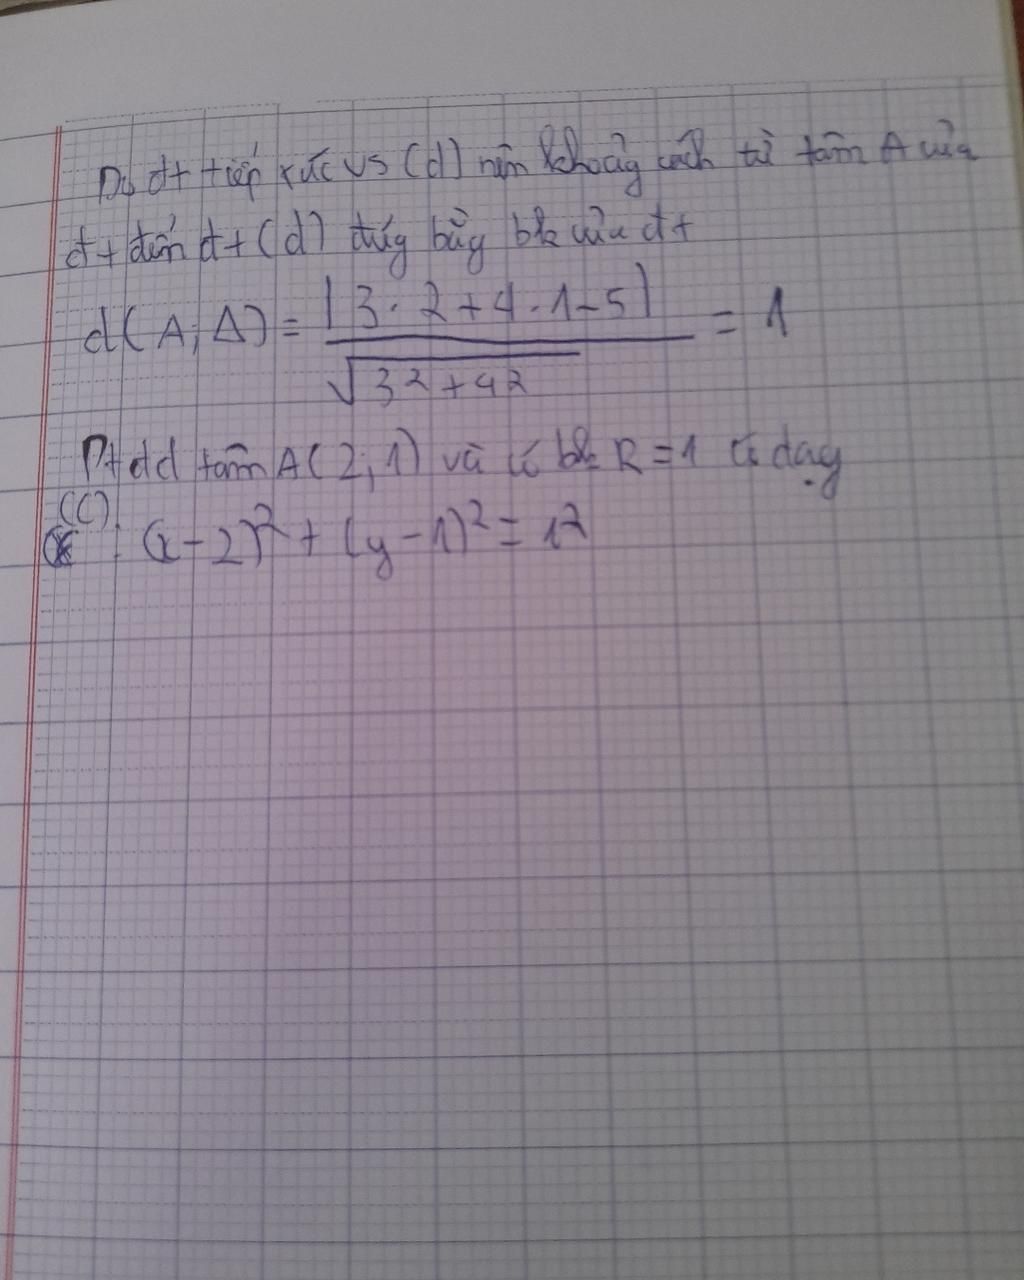 Do đt tiếp xúc vs (d) nên khoảg cách từ tâm A của
đt đến đt (d) đúg bằg bk của đt
d(A; Δ) = |3 . 2 + 4 . 1 - 5| / √(3² + 4²) = 1
Pt đd tâm A(2; 1) và có bk R = 1 có dạg
(C): (x - 2)² + (y - 1)² = 1²